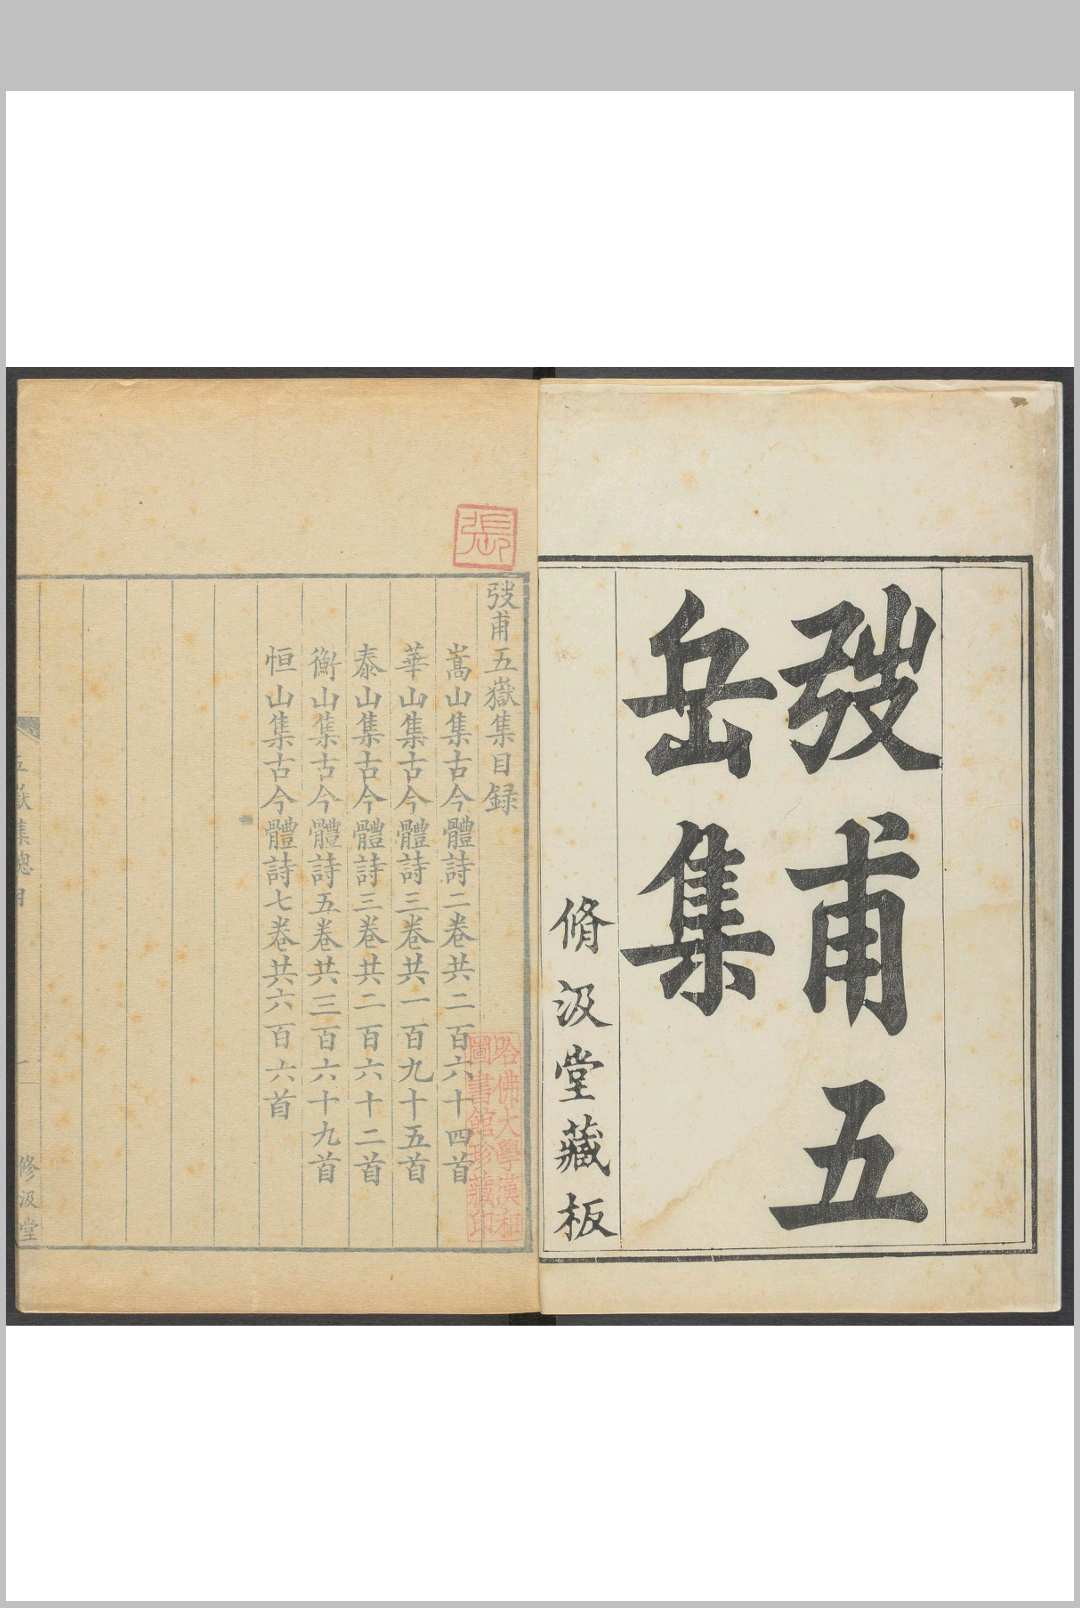 弢甫五
岳集
脩汲堂藏板
弢甫五嶽集目録
嵩山集古今體詩二卷共二百六十四首
華山集古今體詩三卷共一百九十五首
泰山集古今體詩三卷共二百六十二首
衡山集古今體詩五卷共三百六十九首
恒山集古今體詩七卷共六百六首
五嶽集總目
一
修汲堂
哈佛大學漢和
圖書館珍藏印